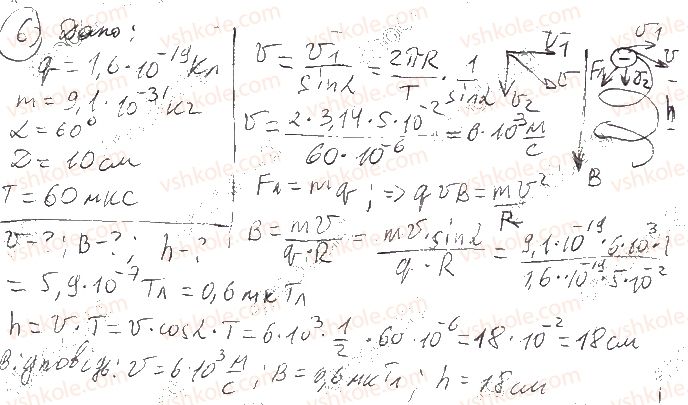 6) Дано:
q = 1,6·10⁻¹⁹ Кл
m = 9,1·10⁻³¹ кг
α = 60°
D = 10 см
T = 60 мкс
v - ?; B - ?; h - ?
v = v₁/sinα = 2πR/T · 1/sinα
v = 2·3,14·5·10⁻²/60·10⁻⁶ = 6·10³ м/с
Fл = mq; => qvB = mv²/R
B = mv/q·R = mv·sinα/q·R = 9,1·10⁻¹⁹·6·10³·
1,6·10⁻¹⁹·5·10⁻²
= 5,9·10⁻⁷ Тл = 0,6 мкТл
h = v·T = v·cosα·T = 6·10³·1/2·60·10⁻⁶ = 18·10⁻² = 18 см
Відповідь: v = 6·10³ м/с; B = 0,6 мкТл; h = 18 см
v₁
v
v₂
v₁
Fл
v
v₂
h
B
vshkole.com